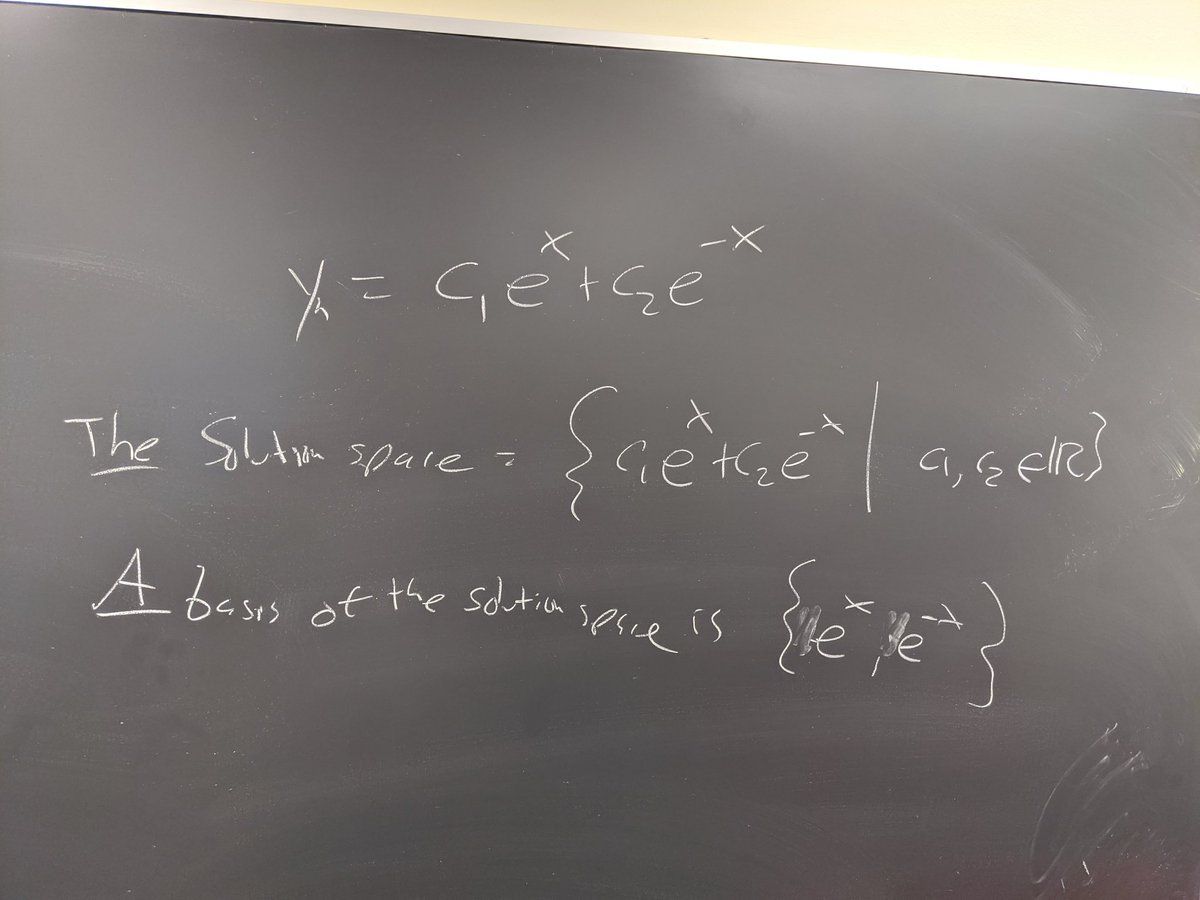 yₕ = c₁eˣ + c₂e⁻ˣ
The Solution space = { c₁eˣ + c₂e⁻ˣ | c₁, c₂ ∈ ℝ }
A basis of the solution space is { eˣ, e⁻ˣ }